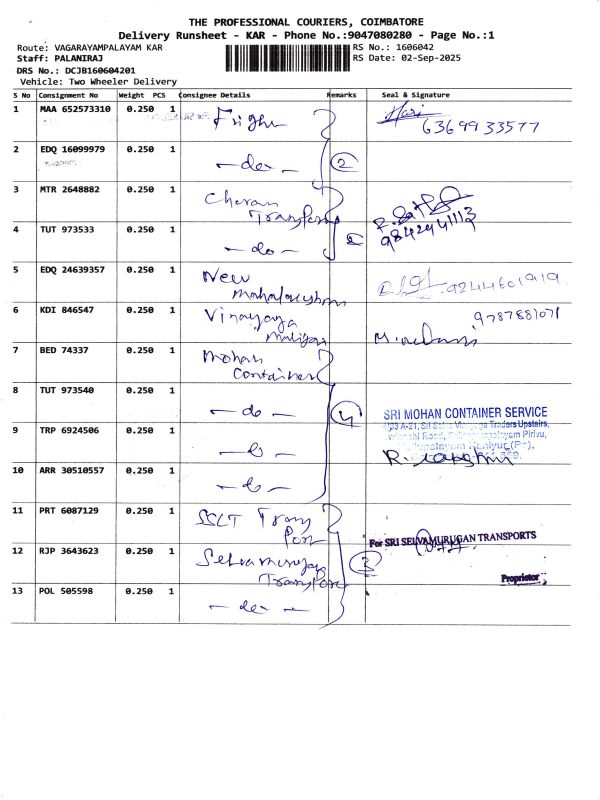 THE PROFESSIONAL COURIERS, COIMBATORE
Delivery Runsheet - KAR - Phone No.:9047080280 - Page No.:1
Route: VAGARAYAMPALAYAM KAR
RS No.: 1606042
Staff: PALANIRAJ
RS Date: 02-Sep-2025
DRS No.: DCJB160604201
Vehicle: Two Wheeler Delivery
S No Consignment No Weight PCS Consignee Details Remarks Seal & Signature
1 MAA 652573310 0.250 1
Hari
6369933577
2 EDQ 16099979 0.250 1 - do - 2
3 MTR 2648882 0.250 1 Charan Transport
9842941113
4 TUT 973533 0.250 1 - do - 2
5 EDQ 24639357 0.250 1 New 9244601919
6 KDI 846547 0.250 1 Vinayaga 9787881071
7 BED 74337 0.250 1 Mohan
Container
8 TUT 973540 0.250 1 - do - 4 SRI MOHAN CONTAINER SERVICE
9 TRP 6924506 0.250 1 - do -
10 ARR 30510557 0.250 1 - do -
11 PRT 6087129 0.250 1 SSLT Trans
Port
For SRI SELVAMURUGAN TRANSPORTS
12 RJP 3643623 0.250 1 Selvamurugan 3
Transport
Proprietor
13 POL 505598 0.250 1 - do -